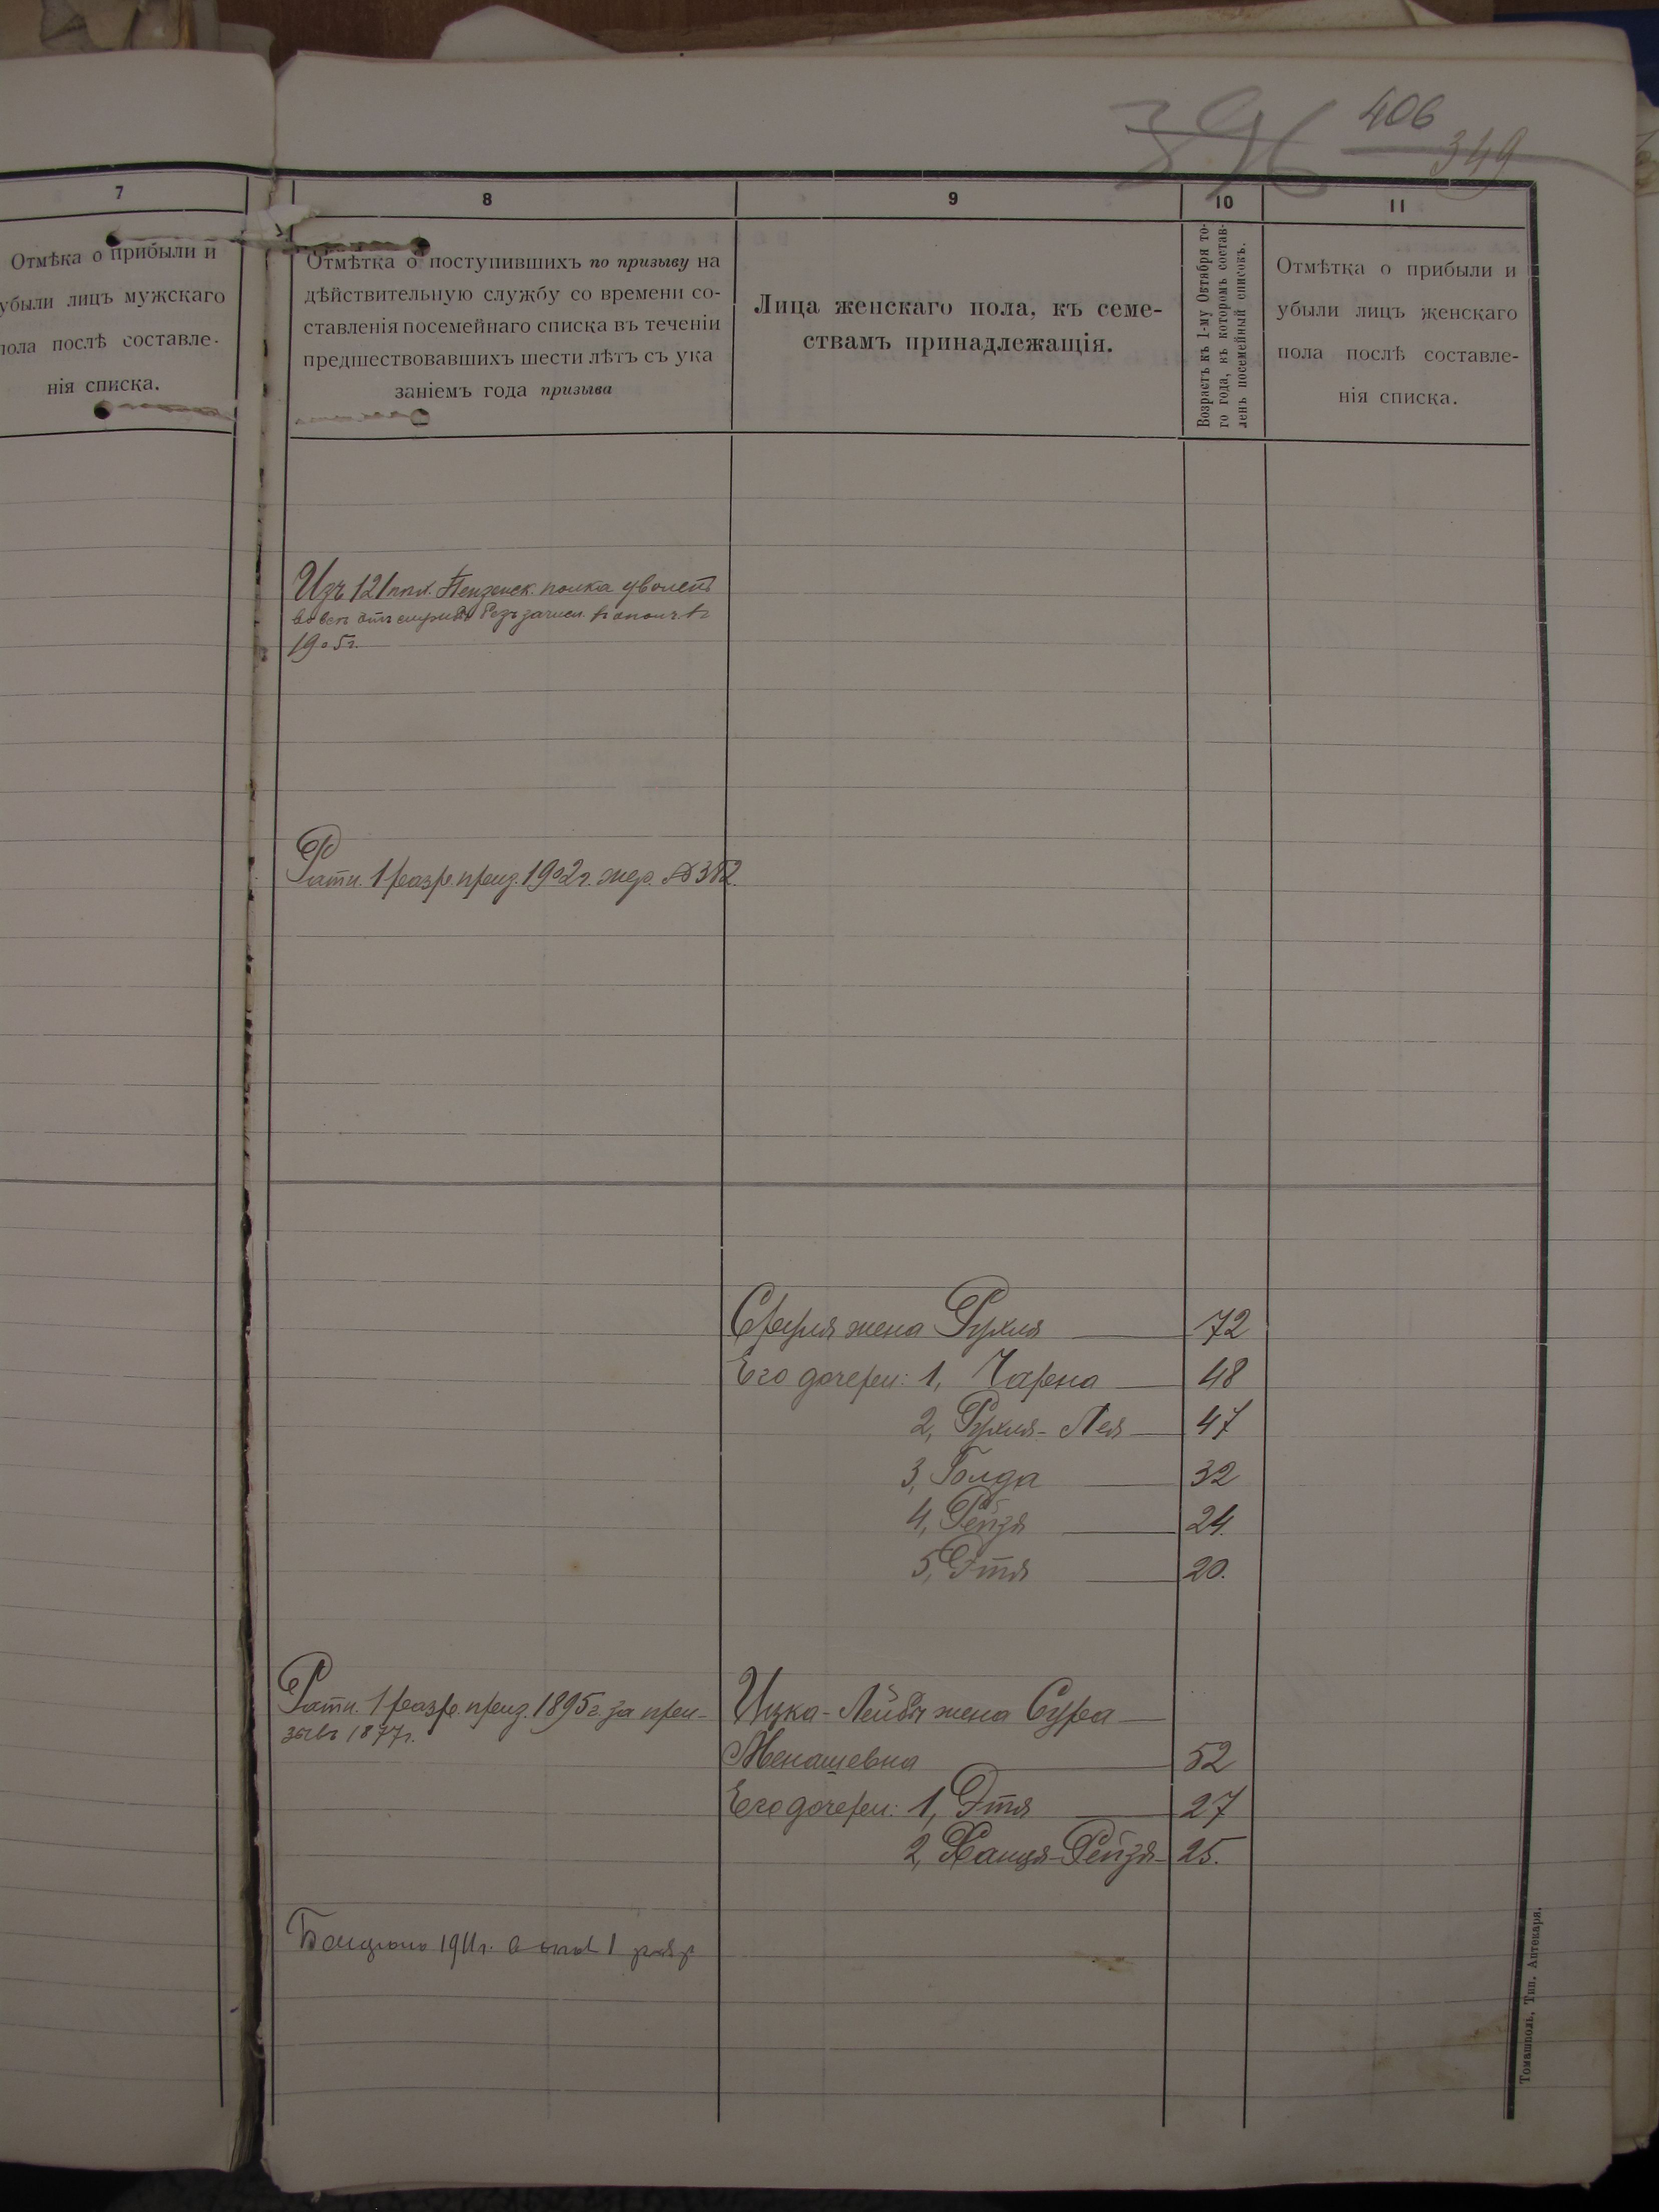 396 406
349
7
Отмѣка о прибыли и
убыли лицъ мужскаго
пола послѣ составле-
нія списка.
8
Отмѣтка о поступившихъ по призыву на
дѣйствительную службу со времени со-
ставленія посемейнаго списка въ теченіи
предшествовавшихъ шести лѣтъ съ ука
заніемъ года призыва
9
Лица женскаго пола, къ семе-
ствамъ принадлежащія.
10
Возрастъ къ 1-му Октября то-
го года, къ которомъ состав-
ленъ посемейный списокъ.
11
Отмѣтка о прибыли и
убыли лицъ женскаго
пола послѣ составле-
нія списка.
Изъ 121 пѣх. Пензенск. полка уволенъ
вовсе отъ службы безъ зачисл. в ополч. в
1905г.
Ратн. 1 разр. приз. 1902г. жер. № 382.
Сруля жена Рухля 72
Его дочери: 1, Чарна 48
2, Рухля-Лея 47
3, Голда 32
4, Рейзя 24.
5, Этя 20.
Ратн. 1 разр. приз. 1895г. за при-
зывъ 1877г.
Ицка-Лейбы жена Сура
Менашевна 52
Его дочери: 1, Этя 27
2, Ханця-Рейзя 25.
1911г. 1 разр
Томашполь, Тип. Аптекаря.